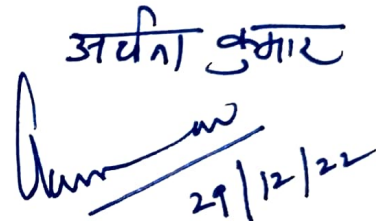 अर्चना कुमार
29/12/22